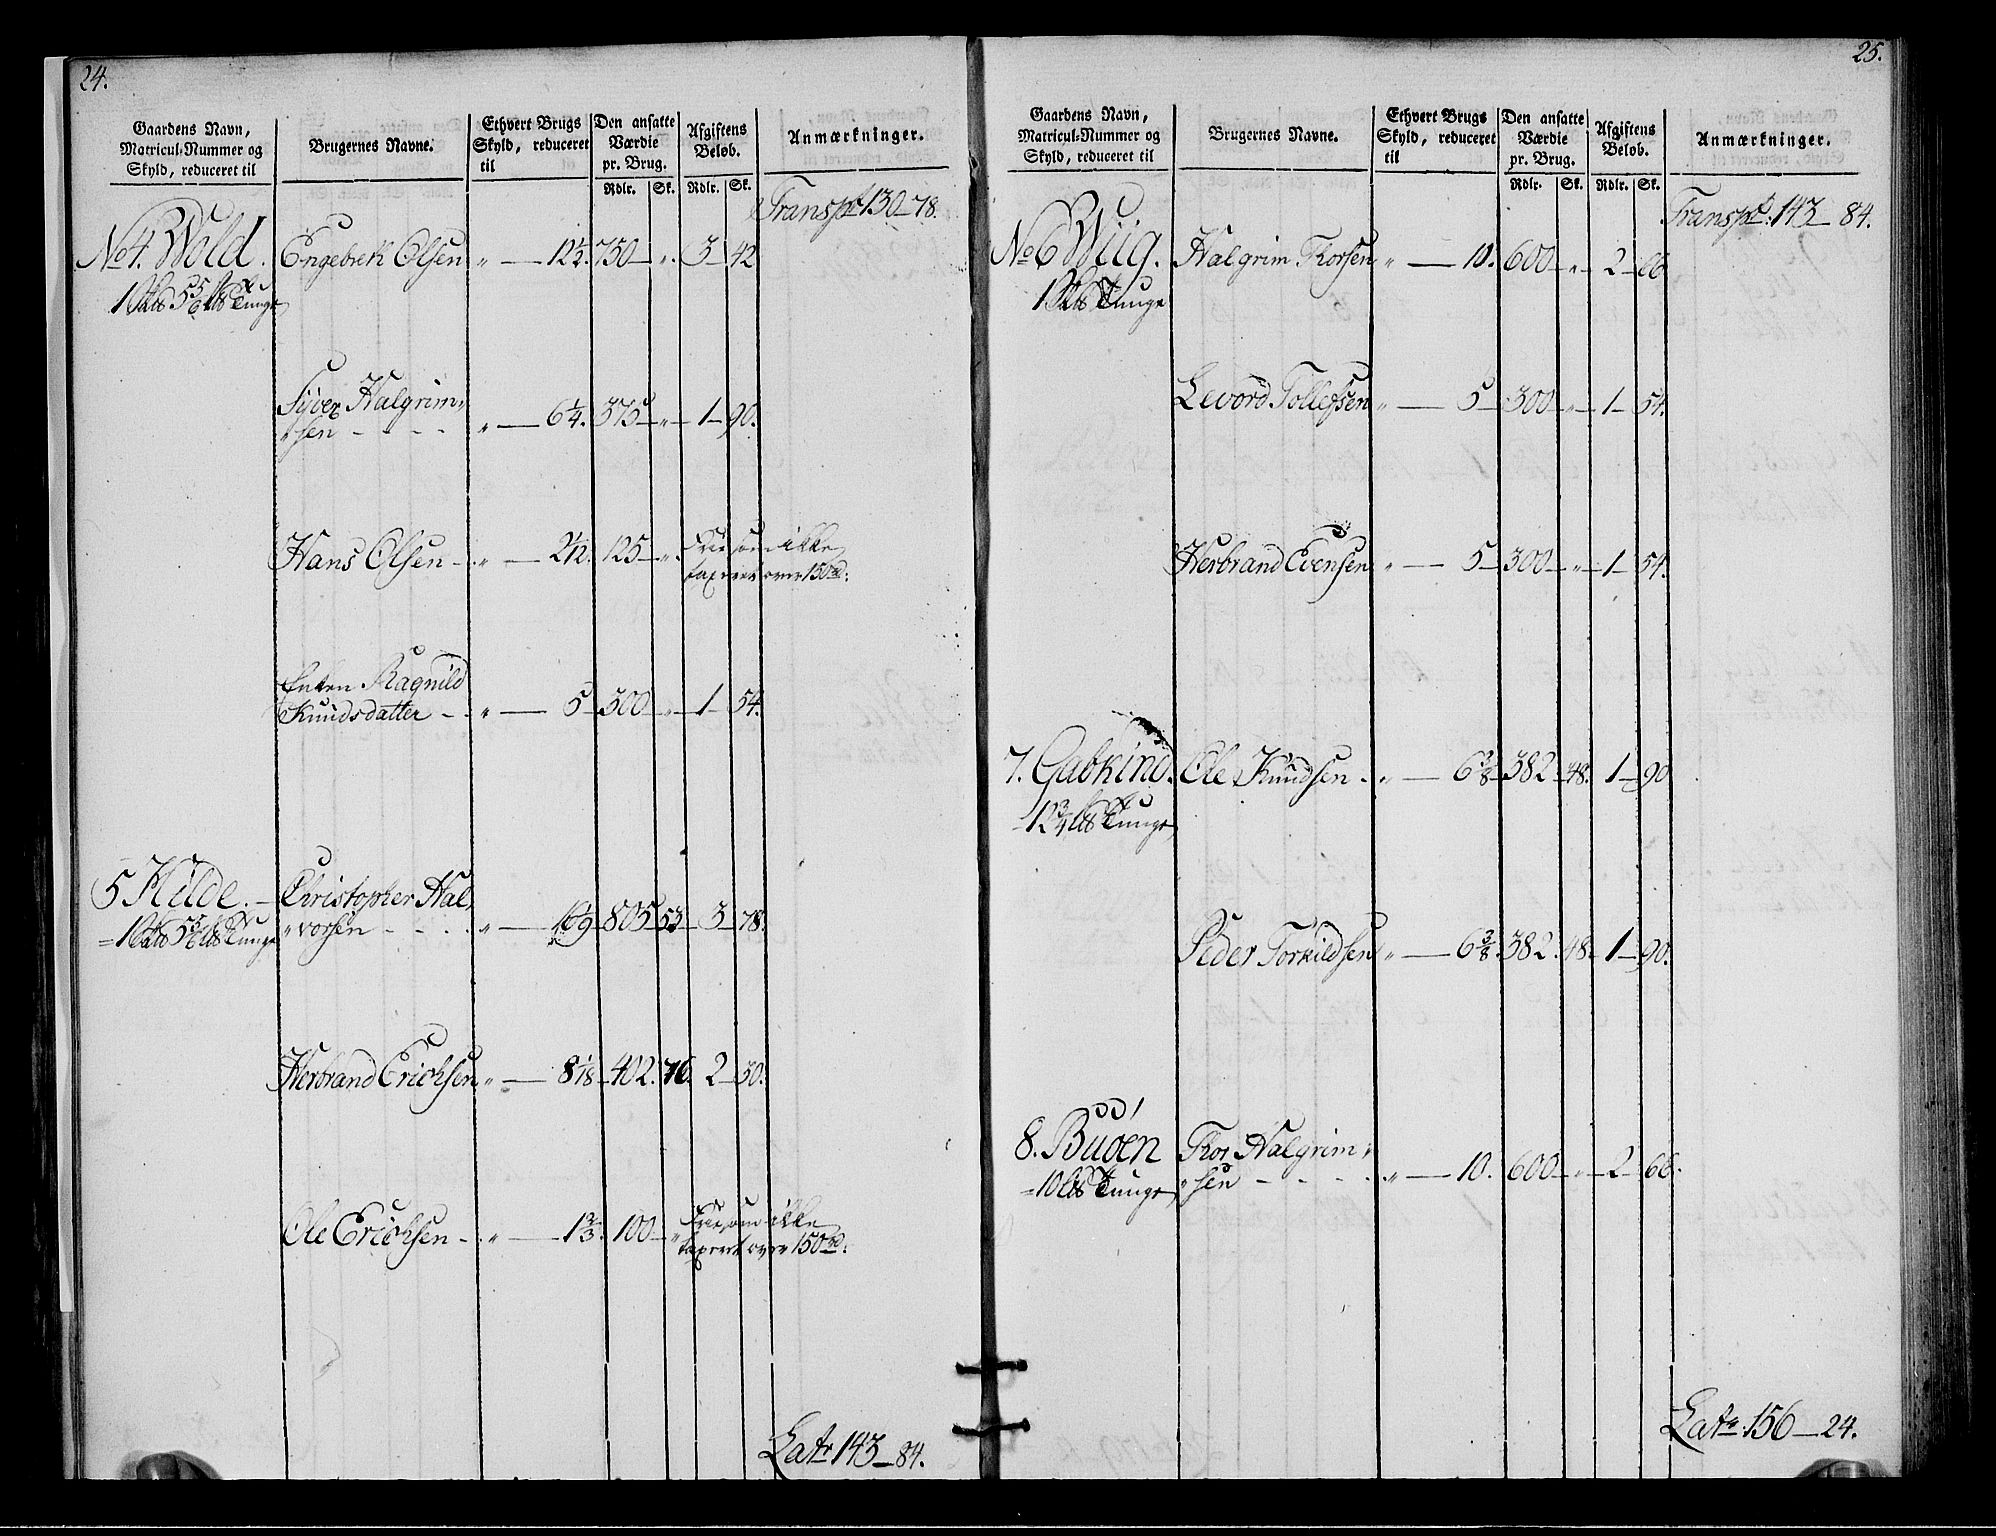 24.
Gaardens Navn,
Matricul-Nummer og
Skyld, reduceret til
Brugernes Navne.
Ethvert Brugs
Skyld, reduceret
til
Den ansatte
Værdie
pr. Brug.
Rdlr. Sk.
Afgiftens
Beløb.
Rdlr. Sk.
Anmærkninger.
Transpt 130 — 78.
No 4. Wold. Engebrek Olsen " — 12½. 750 — " 3 — 42
1 5 5/6 Tunge
Syver Halgrim-
"sen — — — " — 6¼. 375 — " — 1 — 90.
Hans Olsen — " — 2 1/12. 125 — " Frie som ikke
taxeret over 150 rd:
Enken Ragnild
Knudsdatter — " — 5 — 300 — " — 1 — 54.
5 Hilde. — Christopher Hal-
= 1 5 5/6 Tunge "vorsen — — — " — 805 53 3 — 78.
Herbrand Erichsen " — 8 1/18 — 402. 76. 2 — 30.
Ole Erichsen — " — 1 2/3. 100 — " Frie som ikke
taxeret over 150 rd:
Latr 143 — 84.
25.
Gaardens Navn,
Matricul-Nummer og
Skyld, reduceret til
Brugernes Navne.
Ethvert Brugs
Skyld, reduceret
til
Den ansatte
Værdie
pr. Brug.
Rdlr. Sk.
Afgiftens
Beløb.
Rdlr. Sk.
Anmærkninger.
Transpt. 143 — 84.
No 6 Wiig. Halgrim Thorsen " — 10. 600 — " — 2 — 66
1 Tunge
Levord Tollefsen " — 5 — 300 — " — 1 — 54.
Herbrand Evensen " — 5 — 300 — " — 1 — 54.
7. Gabkind. Ole Knudsen — " — 6 3/8 — 382 — 48. 1 — 90
= 12 3/4 Tunge
Peder Torkildsen " — 6 3/8. 382. 48. 1 — 90.
8. Buøen Thor Halgrim-
= 10 Tunge "sen — — — " — 10. 600 — " — 2 — 66.
Latr. 156 — 24.